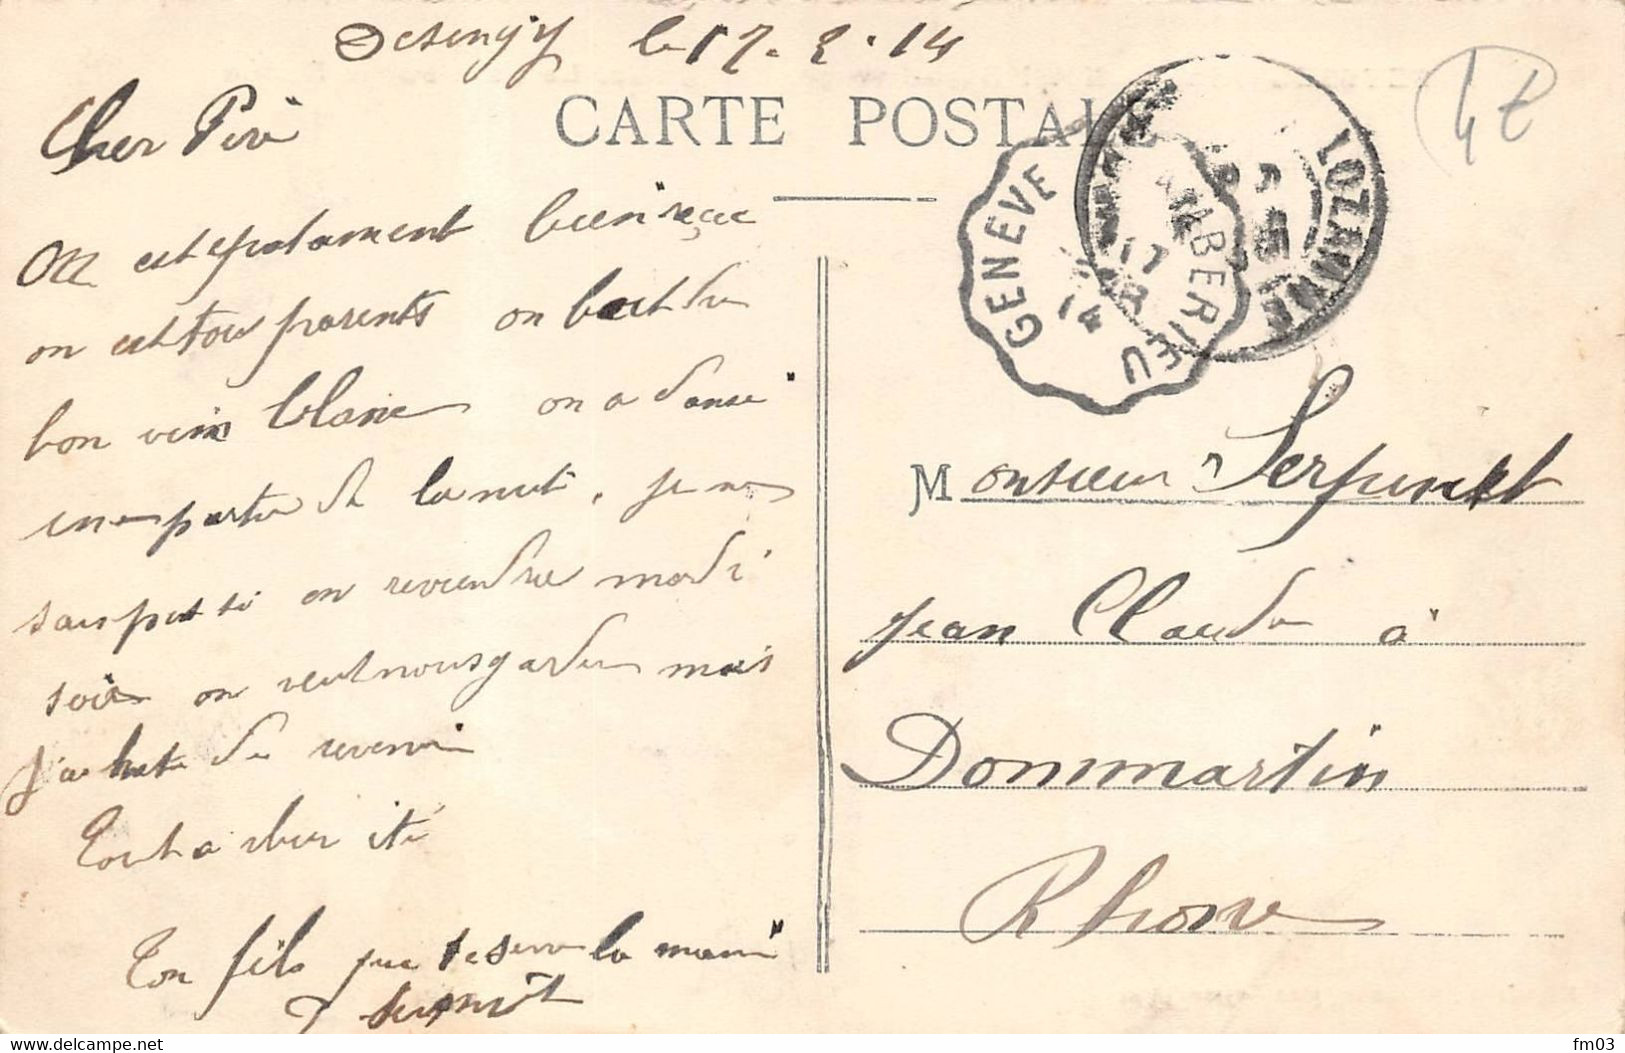 Desingy le 17-2-14
CARTE POSTALE
Cher Peré
On est epatament bien reçu
on est tous parents on boit du
bon vin blanc on a dansé
une partie de la nuit. je ne
sais pas si on reviendra mardi
soir on veut nous garder mais
j'ai hate de revenir
Tout a cher
Ton fils que te serre la main
J Serpinet
GENEVE
AMBERIEU
17
14
LOZANNE
42
Monsieur Serpinet
Jean Claude à
Dommartin
Rhone
fm03
www.delcampe.net